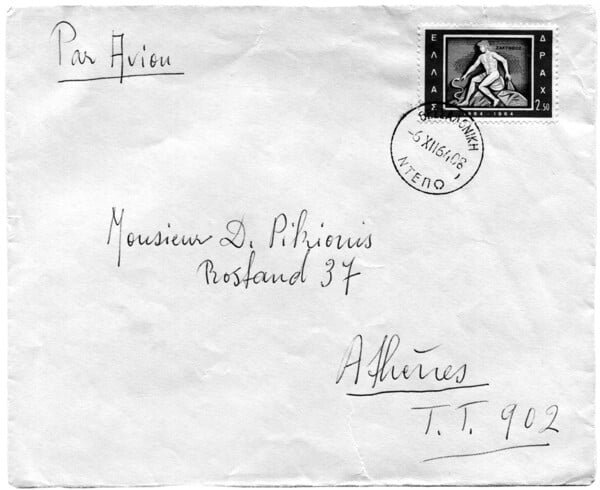 Par Avion
ΕΛΛΑΣ
ΖΑΚΥΝΘΟΣ
ΔΡΑΧ
2.50
1864 - 1964
ΘΕΣΣΑΛΟΝΙΚΗ
-6 XII 64 08
ΝΤΕΠΩ
Monsieur D. Pikionis
Rostand 37
Athènes
T.T. 902